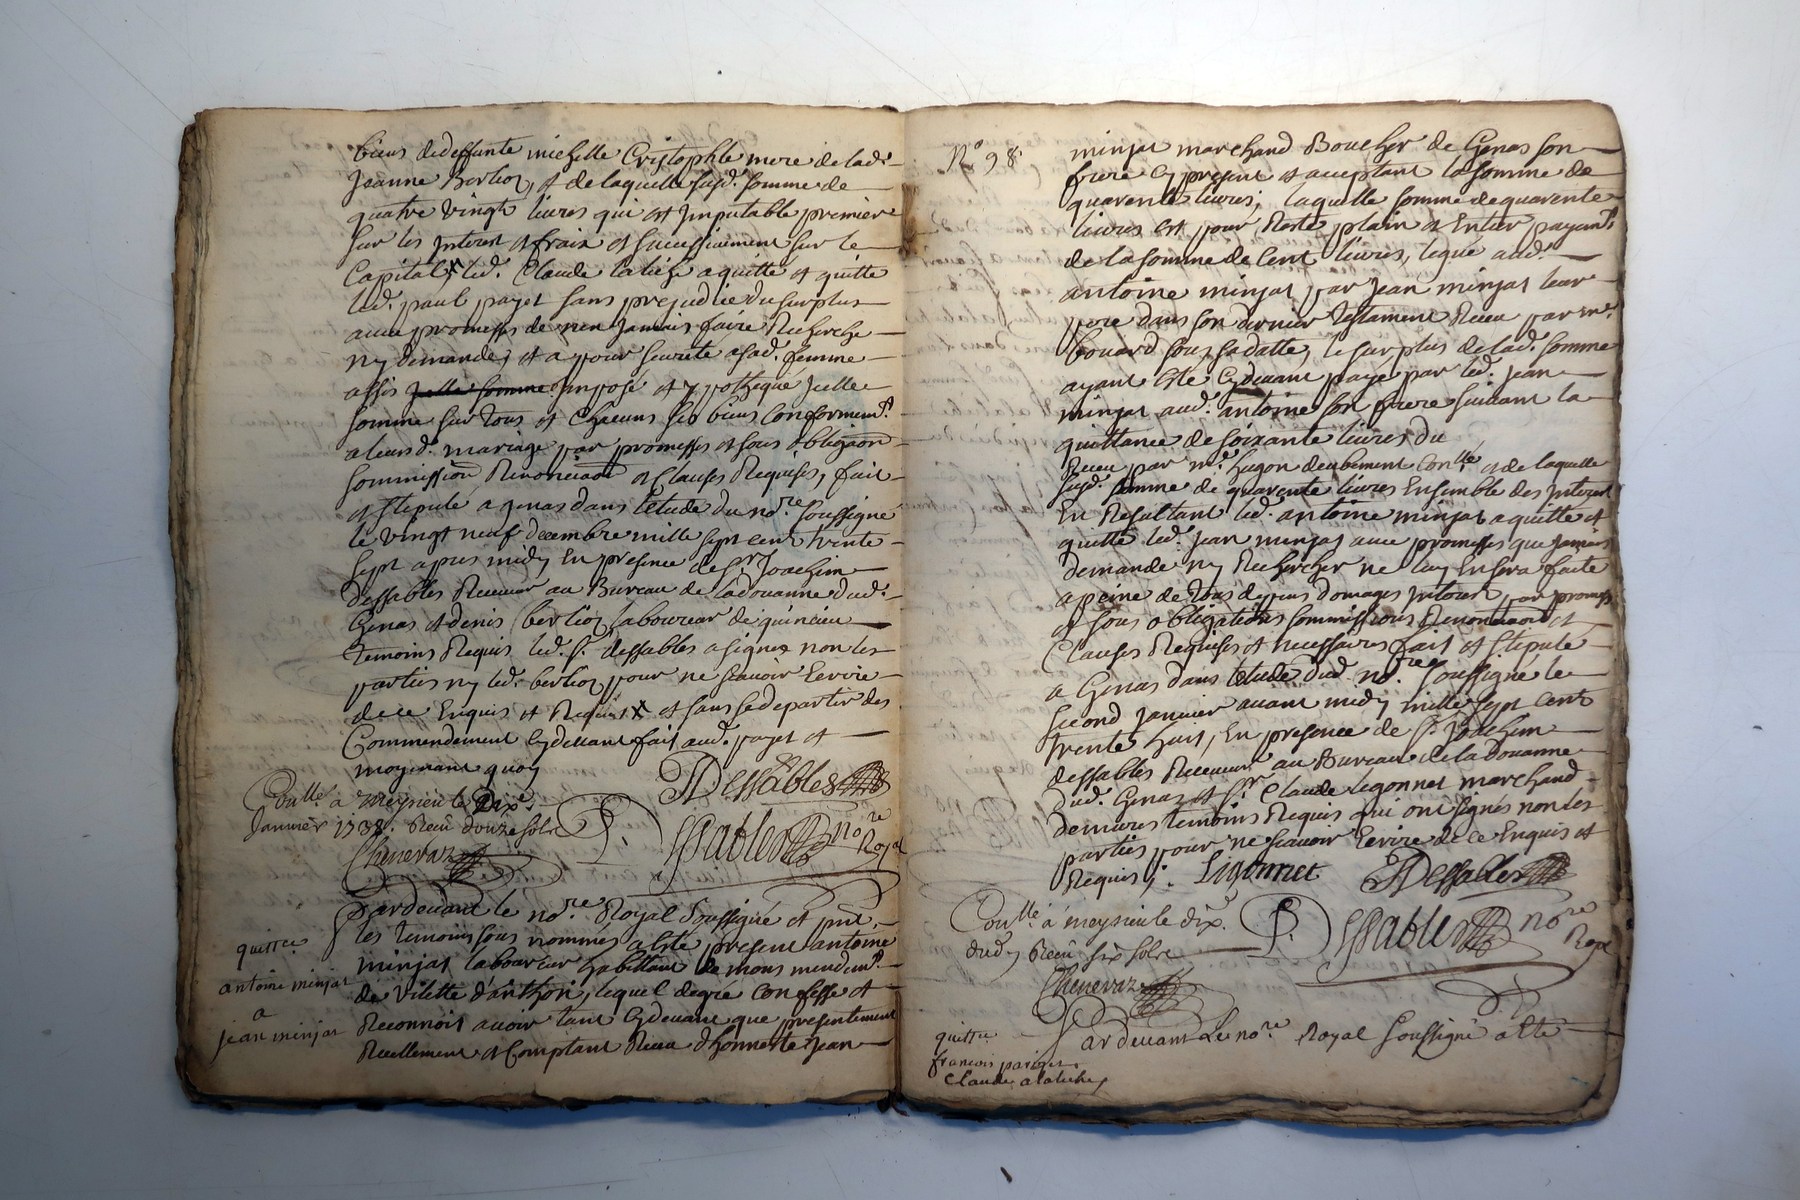 biens dedeffunte michelle Cristophle mere de lad.e
Jeanne Berlioz, et de laquelle susd.e somme de
quatre vingt livres qui est Imputable premiere
sur les Interest et fraix et successivement sur le
Capital led. Claude latiere a quitté et quitte
led. paul payet sans prejudice du surplus
avec promesses de nen Jamais faire Recherche
ny demande, et a pour seurete a sad. femme
assis Imposé et ypothequé Jcelle
somme sur tous et chacuns ses biens conformem.t
a leurd. mariage par promesses et sous obligaon
sommission Renonciaon et Clauses Requises, fait
et stipule a genas dans letude du no.re soussigné
le vingt neuf decembre mille sept cent trente
sept apres midy En presence de S.r Joachim
dessables Receveur au Bureau de la douanne dud.
Genas et denis berlioz laboureur de quincieu
temoins Requis led. S.r dessables a signé non les
parties ny led. berlioz pour ne scavoir Ecrire
de ce Enquis et Requis X et sans se departir des
Commendement cydevant fait aud. payet et
moyenant quoy
JDessables
Con.lle à meysieu le Dix.e
Janvier 1738. Receu douze sols
P. Dessables no.re Royal
Chenevaz
pardevant le no.re Royal soussigné et pnt.
les temoins sous nommés a este present antoine
quittce
antoine minjat
a
jean minjat
minjat laboureur habittant de mons mendem.t
de vilette d'anthon, lequel de gré confesse et
Reconnoit avoir tant cydevant que presentement
Reellement et Comptant Receu d'honneste Jean
N.o 98.
minjat marchand Boucher de Genas son
frere cy present et acceptant la somme de
quarente livres, laquelle somme de quarente
livres est pour Reste plain et Entier payem.t
de la somme de Cent livres, legué aud.
antoine minjat par Jean minjat leur
pere dans son dernier testament Receu par m.e
bouard sous sa datte, le surplus de lad. somme
ayant esté cydevant payé par led. Jean
minjat aud. antoine son frere suivant la
quittance de soixante livres du
Receu par m.e hugon deubement con.llé et de laquelle
susd. somme de quarente livres Ensemble des Interest
En Resultant led. antoine minjat a quitté et
quitte led. Jean minjat avec promesses que Jamais
demande ny Rechercher ne luy En sera faite
a peine de tous depens domages Interest par promesses
et sous obligations sommissions Renonciaons et
Clauses Requises et necessaires fait et stipule
a Genas dans letude dud. no.re soussigné le
second Janvier avant midy mille sept cent
trente huit, En presence de S.r Joachim
dessables Receveur au Bureau de la douanne
dud. Genas et S.r Claude legonnet marchand
demeures temoins Requis qui ont signés non les
parties pour ne scavoir Ecrire de ce Enquis et
Requis. Ligonnet JDessables
Con.lle à meysieu le dix.e
dud. Receu six sols
P. Dessables no.re Royal
Chenevaz
quittce
francois pariget
Claude alatiche
Pardevant Le no.re Royal soussigné a esté